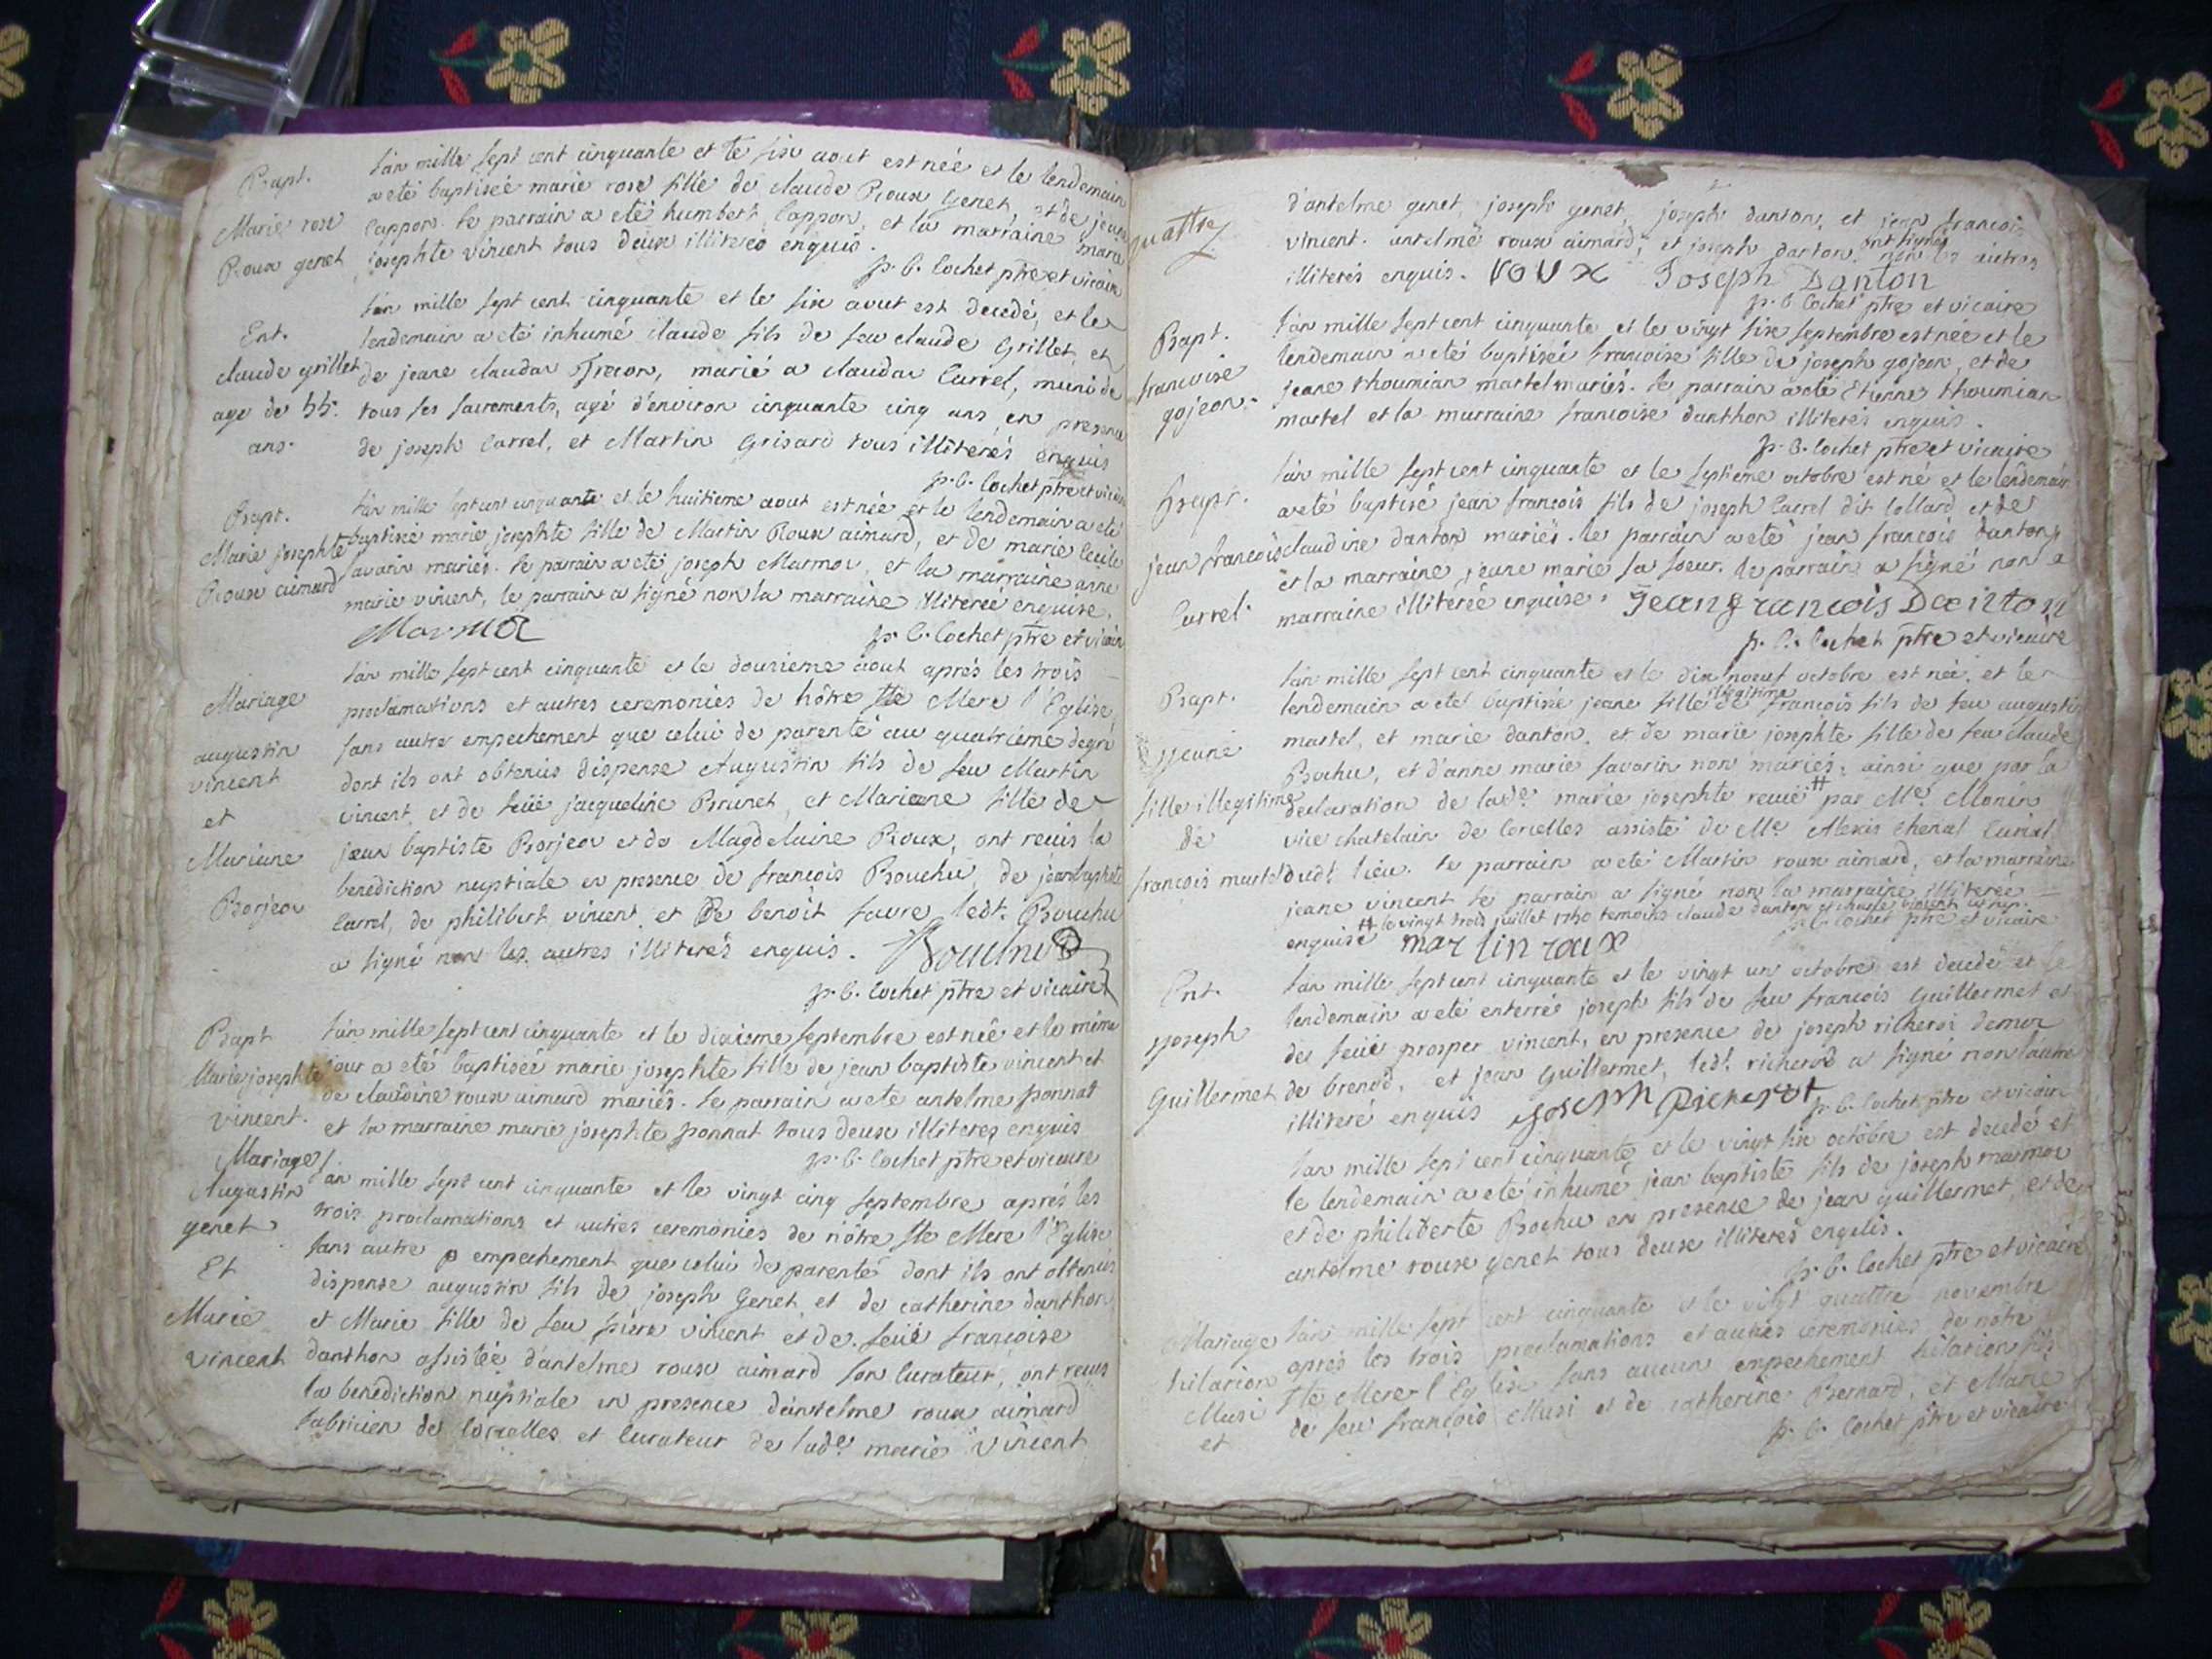 Bapt.
Marie rose
Roux genet
l'an mille sept cent cinquante et le six aout est née et le lendemain
a eté baptiseé marie rose fille de claude Roux genet, et de jeane
cappon. le parrain a eté humbert cappon, et la marraine marie
josephte vincent tous deux illitereés enquis.
p. C. Cochet ptre et vicaire
Ent.
claude grillet
age de 55.
ans.
l'an mille sept cent cinquante et le six aout est decedé, et le
lendemain a eté inhumé claude fils de feu claude Grillet, et
de jeane claudax Frecon, marié a claudax Carrel, muni de
tous ses sacrements, agé d'environ cinquante cinq ans, en presence
de joseph Carrel, et Martin Grisard tous illiterés enquis
p. C. Cochet ptre et vicaire
Bapt.
Marie josephte
Roux aimard
l'an mille sept cent cinquante et le huitieme aout est née et le lendemain a eté
baptisée marie josephte fille de Martin Roux aimard, et de marie Cecile
savarin mariés. le parrain a eté joseph Marmox, et la marraine anne
marie vincent, le parrain a signé non la marraine illitereé enquise.
Marmox
p. C. Cochet ptre et vicaire
Mariage
augustin
vincent
et
Mariane
Borjeox
l'an mille sept cent cinquante et le douzieme aout aprés les trois
proclamations et autres ceremonies de nôtre Ste Mere l'Eglise,
sans autre empechement que celui de parenté au quatriéme degré
dont ils ont obtenus dispense Augustin fils de feu Martin
vincent, et de feüe jacqueline Brunet, et Mariane fille de
jean baptiste Borjeox et de Magdelaine Roux, ont recus la
benediction nuptiale en presence de francois Bouchu, de jean baptiste
Carrel, de philibert vincent, et de benoit favre, ledt. Bouchu
a signé non les autres illiterés enquis. Bouchu
p. C. Cochet ptre et vicaire
Bapt
Marie josephte
vincent.
l'an mille sept cent cinquante et le dixieme septembre est née et le même
jour a eté baptiseé marie josephte fille de jean baptiste vincent et
de claudine roux aimard mariés. le parrain a eté antelme ponnat
et la marraine marie josephte ponnat tous deux illiteres enquis
p. C. Cochet ptre et vicaire
Mariage
Augustin
genet
Et
Marie
vincent
l'an mille sept cent cinquante et le vingt cinq septembre aprés les
trois proclamations et autres ceremonies de nôtre Ste Mere l'Eglise
sans autre empechement que celui de parenté dont ils ont obtenus
dispense augustin fils de joseph Genet et de catherine danthon,
et Marie fille de feu piere vincent et de feüe francoise
danthon assistée d'antelme roux aimard son curateur, ont recus
la benediction nuptiale en presence d'antelme roux aimard
fabricien de Corcelles et curateur de lade. marie vincent
quattre
d'antelme genet, joseph genet, joseph danton, et jean francois
vincent. antelme roux aimard, et joseph danton ont signés non les autres
illiterés enquis. roux Joseph Danton
p. C. Cochet ptre et vicaire
Bapt.
francoise
gojeon.
l'an mille sept cent cinquante et le vingt six septembre est née et le
lendemain a eté baptiseé francoise fille de joseph gojeon, et de
jeane thoumian martel mariés. le parrain a eté Etienne thoumian
martel et la marraine francoise danthon illiterés enquis.
p. C. Cochet ptre et vicaire
bapt.
jean francois
Carrel.
l'an mille sept cent cinquante et le septieme octobre est né et le lendemain
a eté baptisé jean francois fils de joseph Carrel dit Collard et de
claudine danton mariés. le parrain a eté jean francois danton,
et la marraine jeane marie sa soeur. le parrain a signé non la
marraine illitereé enquise. Jean francois Danton
p. C. Cochet ptre et vicaire
Bapt.
jeane
fille illegitime
de
francois martel
l'an mille sept cent cinquante et le dix noeuf octobre est née, et le
lendemain a eté baptiseé jeane fille illegitime de francois fils de feu augustin
martel, et marie danton, et de marie joséphte fille de feu claude
Bochu, et d'anne marie savarin non mariés; ainsi que par la
declaration de lade. marie josephte recue # par Me. Monin
vice chatelain de Corcelles assisté de Me Alexis chenal Curial
dudt. lieu. le parrain a eté Martin roux aimard, et la marraine
jeane vincent le parrain a signé non la marraine illitereé
# le vingt trois juillet 1750 temoins claude danton et charle vincent
enquise martin roux
p. C. Cochet ptre et vicaire
Ent.
joseph
Guillermet
l'an mille sept cent cinquante et le vingt un octobre est decedé et le
lendemain a eté enterré joseph fils de feu francois Guillermet et
de feüe prosper vincent, en presence de joseph richerot demeu.
de brenod, et jean Guillermet, ledt. richerot a signé non l'autre
illiteré enquis Joseph Richerot
p. C. Cochet ptre et vicaire
l'an mille sept cent cinquante et le vingt six octobre est decedé et
le lendemain a eté inhumé jean baptiste fils de joseph marmox
et de philiberte Bochu en presence de jean guillermet, et de
antelme roux genet tous deux illiterés enquis.
p. C. Cochet ptre et vicaire
Mariage
hilarion
Musi
et
l'an mille sept cent cinquante et le vingt quattre novembre
aprés les trois proclamations et autres ceremonies de nôtre
Ste Mere l'Eglise sans aucun empechement hilarion fils
de feu francois Musi et de catherine Bernard, et Marie
p. C. Cochet ptre et vicaire